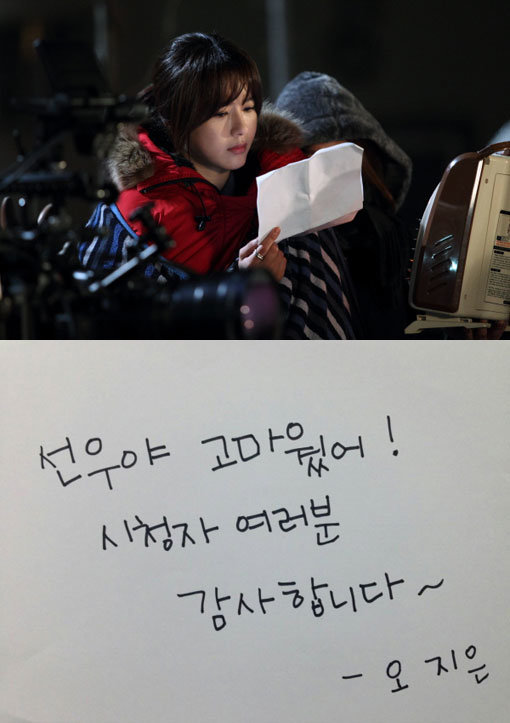 선우야 고마웠어!
시청자 여러분
감사합니다~
- 오 지은